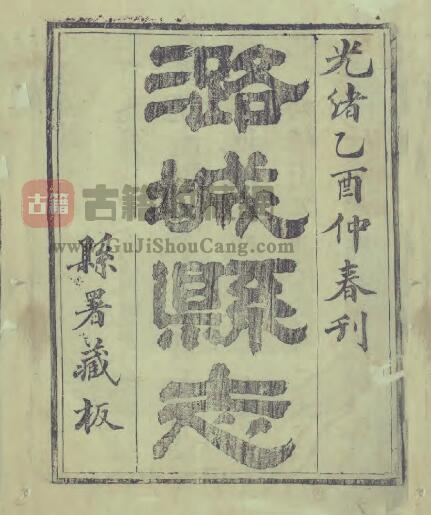 光绪乙酉仲春刊
潞城縣志
縣署藏板
古籍
www.GuJiShouCang.com